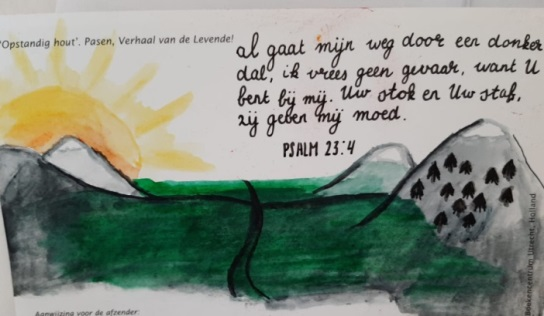 'Opstandig hout'. Pasen, Verhaal van de Levende!
al gaat mijn weg door een donker
dal, ik vrees geen gevaar, want U
bent bij mij. Uw stok en Uw staf,
zij geven mij moed.
PSALM 23:4
Boekencentrum Utrecht, Holland
Aanwijzing voor de afzender